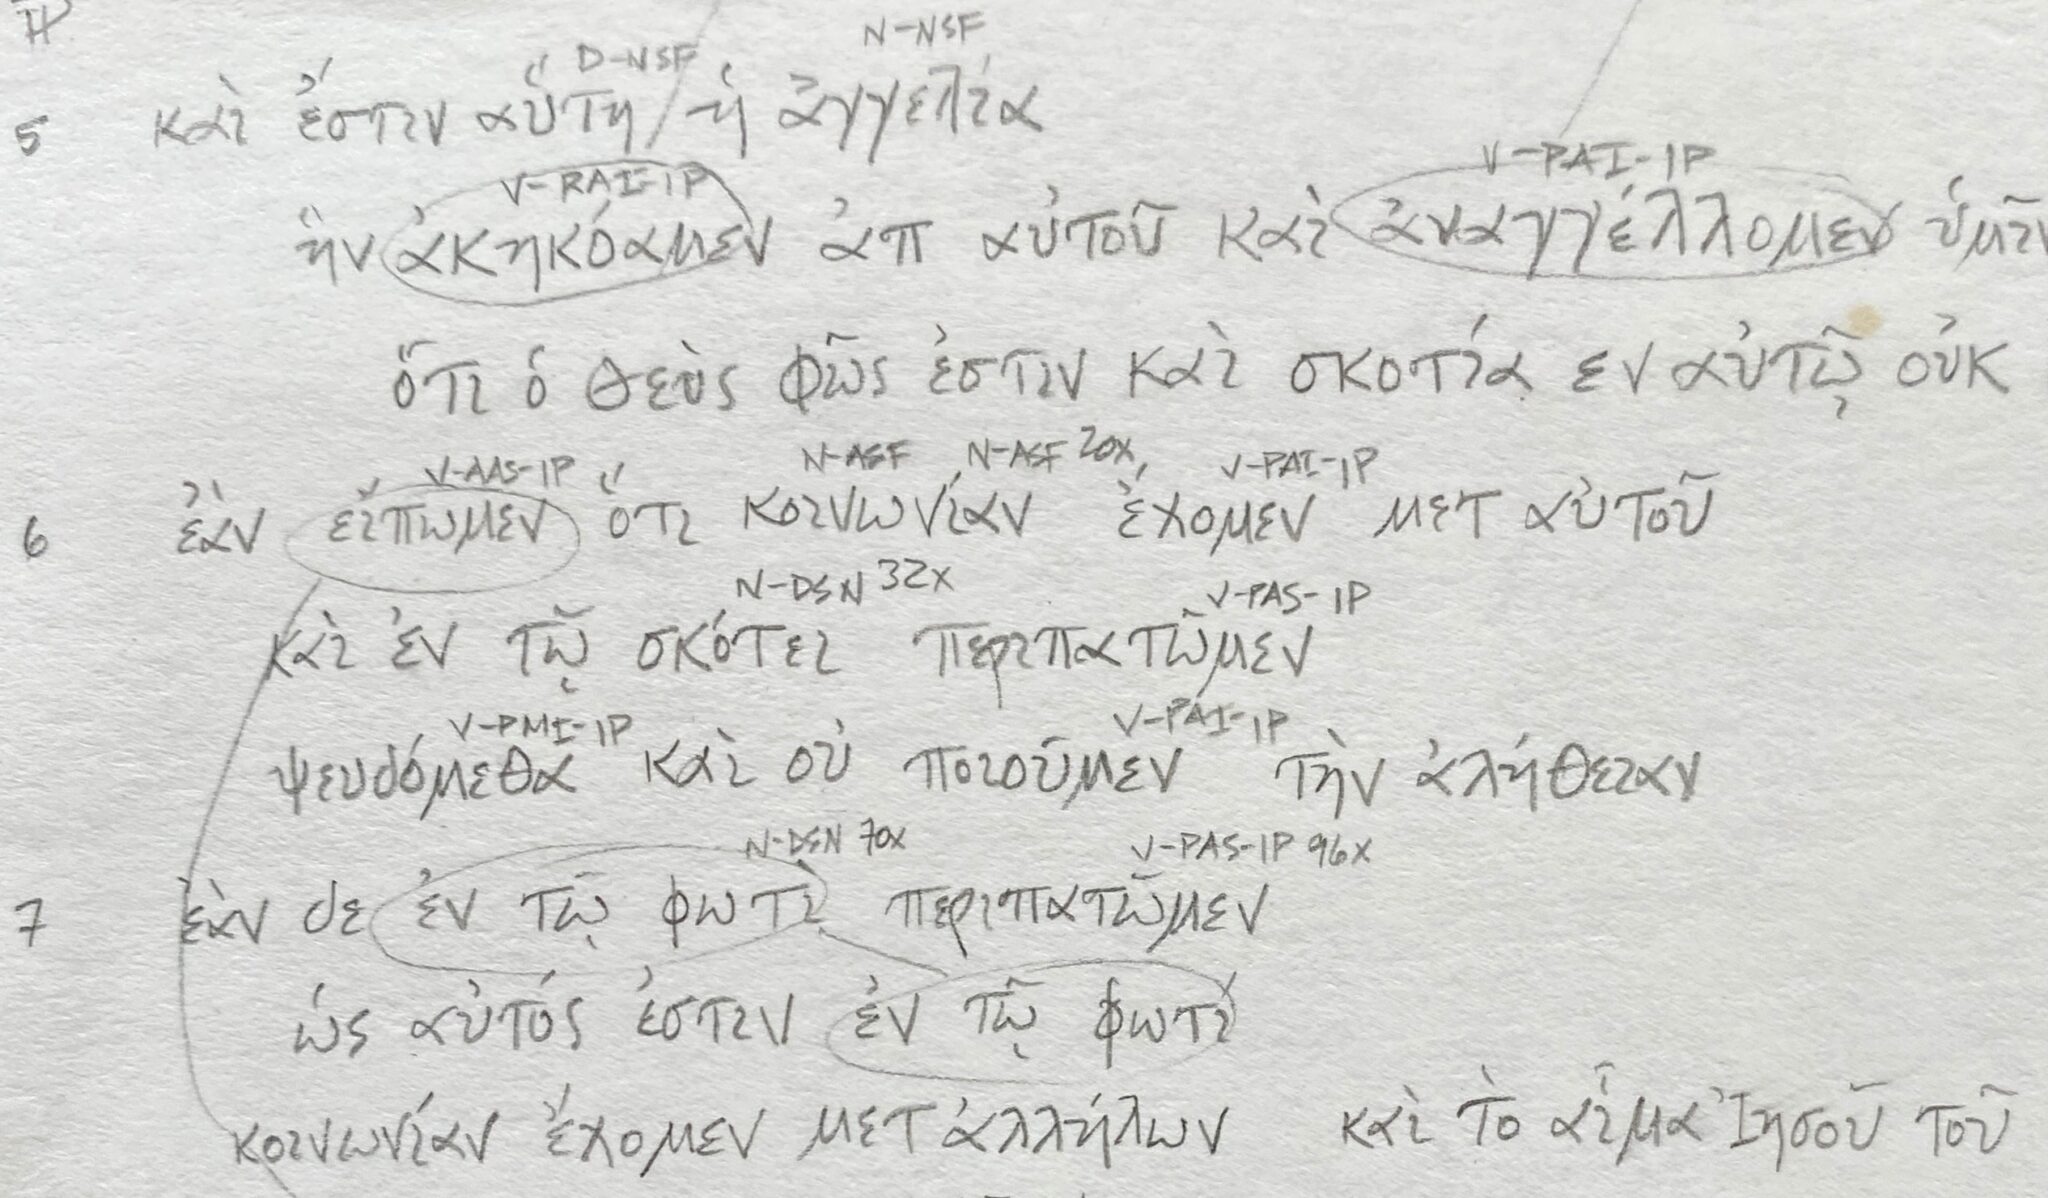 D-NSF N-NSF
5 καὶ ἐστιν αὕτη / ἡ ἀγγελία
V-RAI-1P V-PAI-1P
ἣν ἀκηκόαμεν ἀπ αὐτοῦ καὶ ἀναγγέλλομεν ὑμῖν
ὅτι ὁ θεὸς φῶς ἐστιν καὶ σκοτία εν αὐτῷ οὐκ
V-AAS-1P N-ASF N-ASF 20x V-PAI-1P
6 ἐὰν εἴπωμεν ὅτι κοινωνίαν ἔχομεν μετ αὐτοῦ
N-DSN 32x V-PAS-1P
καὶ ἐν τῷ σκότει περιπατῶμεν
V-PMI-1P V-PAI-1P
ψευδόμεθα καὶ οὐ ποιοῦμεν τὴν ἀλήθειαν
N-DSN 70x V-PAS-1P 96x
7 ἐὰν δε ἐν τῷ φωτὶ περιπατῶμεν
ὡς αὐτός ἐστιν ἐν τῷ φωτί
κοινωνίαν ἔχομεν μετ ἀλλήλων καὶ τὸ αἷμα Ἰησοῦ τοῦ